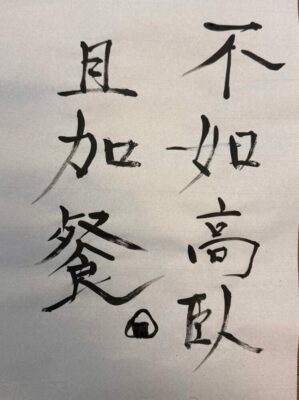 不如高臥
且加餐